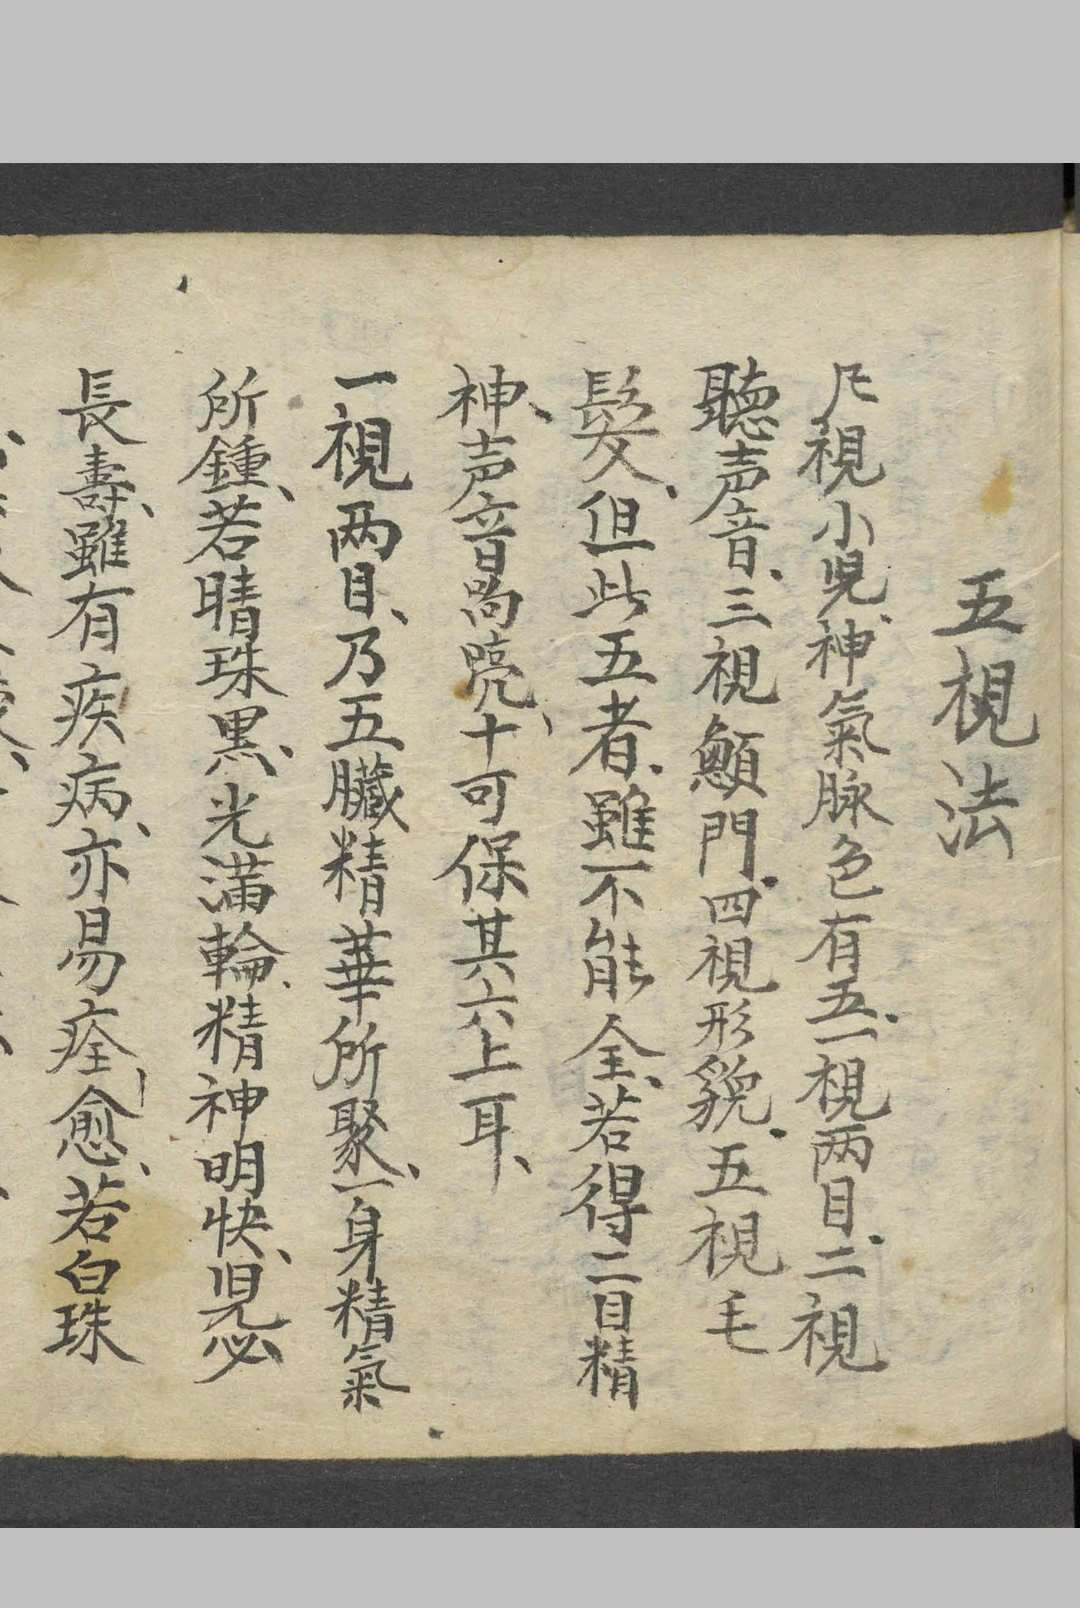 五視法
凡視小児、神氣脉色有五、一視两目、二視
聽声音、三視顖門、四視形貌、五視毛
髮、但此五者、雖不能全、若得二目精
神、声音嚮喨、十可保其六上耳、
一視两目、乃五臓精華所聚、一身精氣
所鍾、若睛珠黒、光滿輪、精神明快、児必
長壽、雖有疾病、亦易痊愈、若白珠